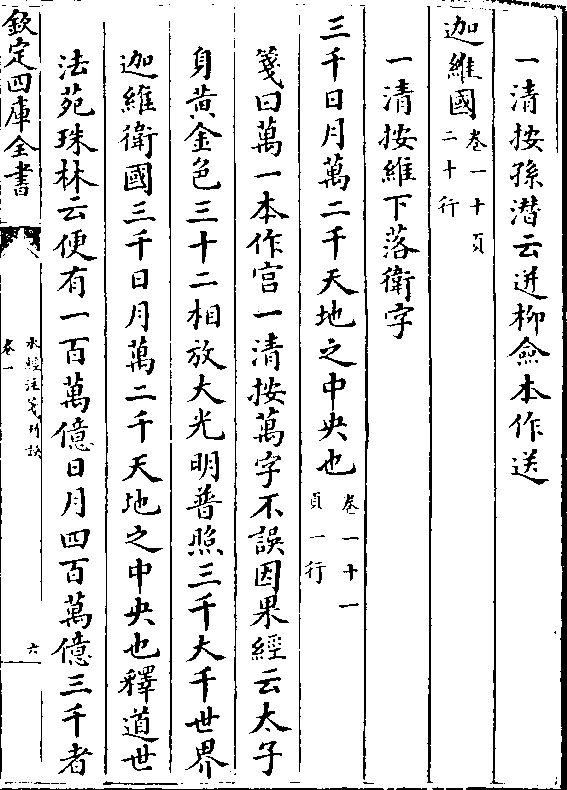 一清按孫潜云迸柳僉本作送
迦維國卷一十頁
二十行
一清按維下落衛字
三千日月萬二千天地之中央也卷一十一
頁一行
箋曰萬一本作宫一清按萬字不誤因果經云太子
身黄金色三十二相放大光明普照三千大千世界
迦維衛國三千日月萬二千天地之中央也釋道世
法苑珠林云便有一百萬億日月四百萬億三千者
欽定四庫全書
水經注箋刊誤
卷一
六